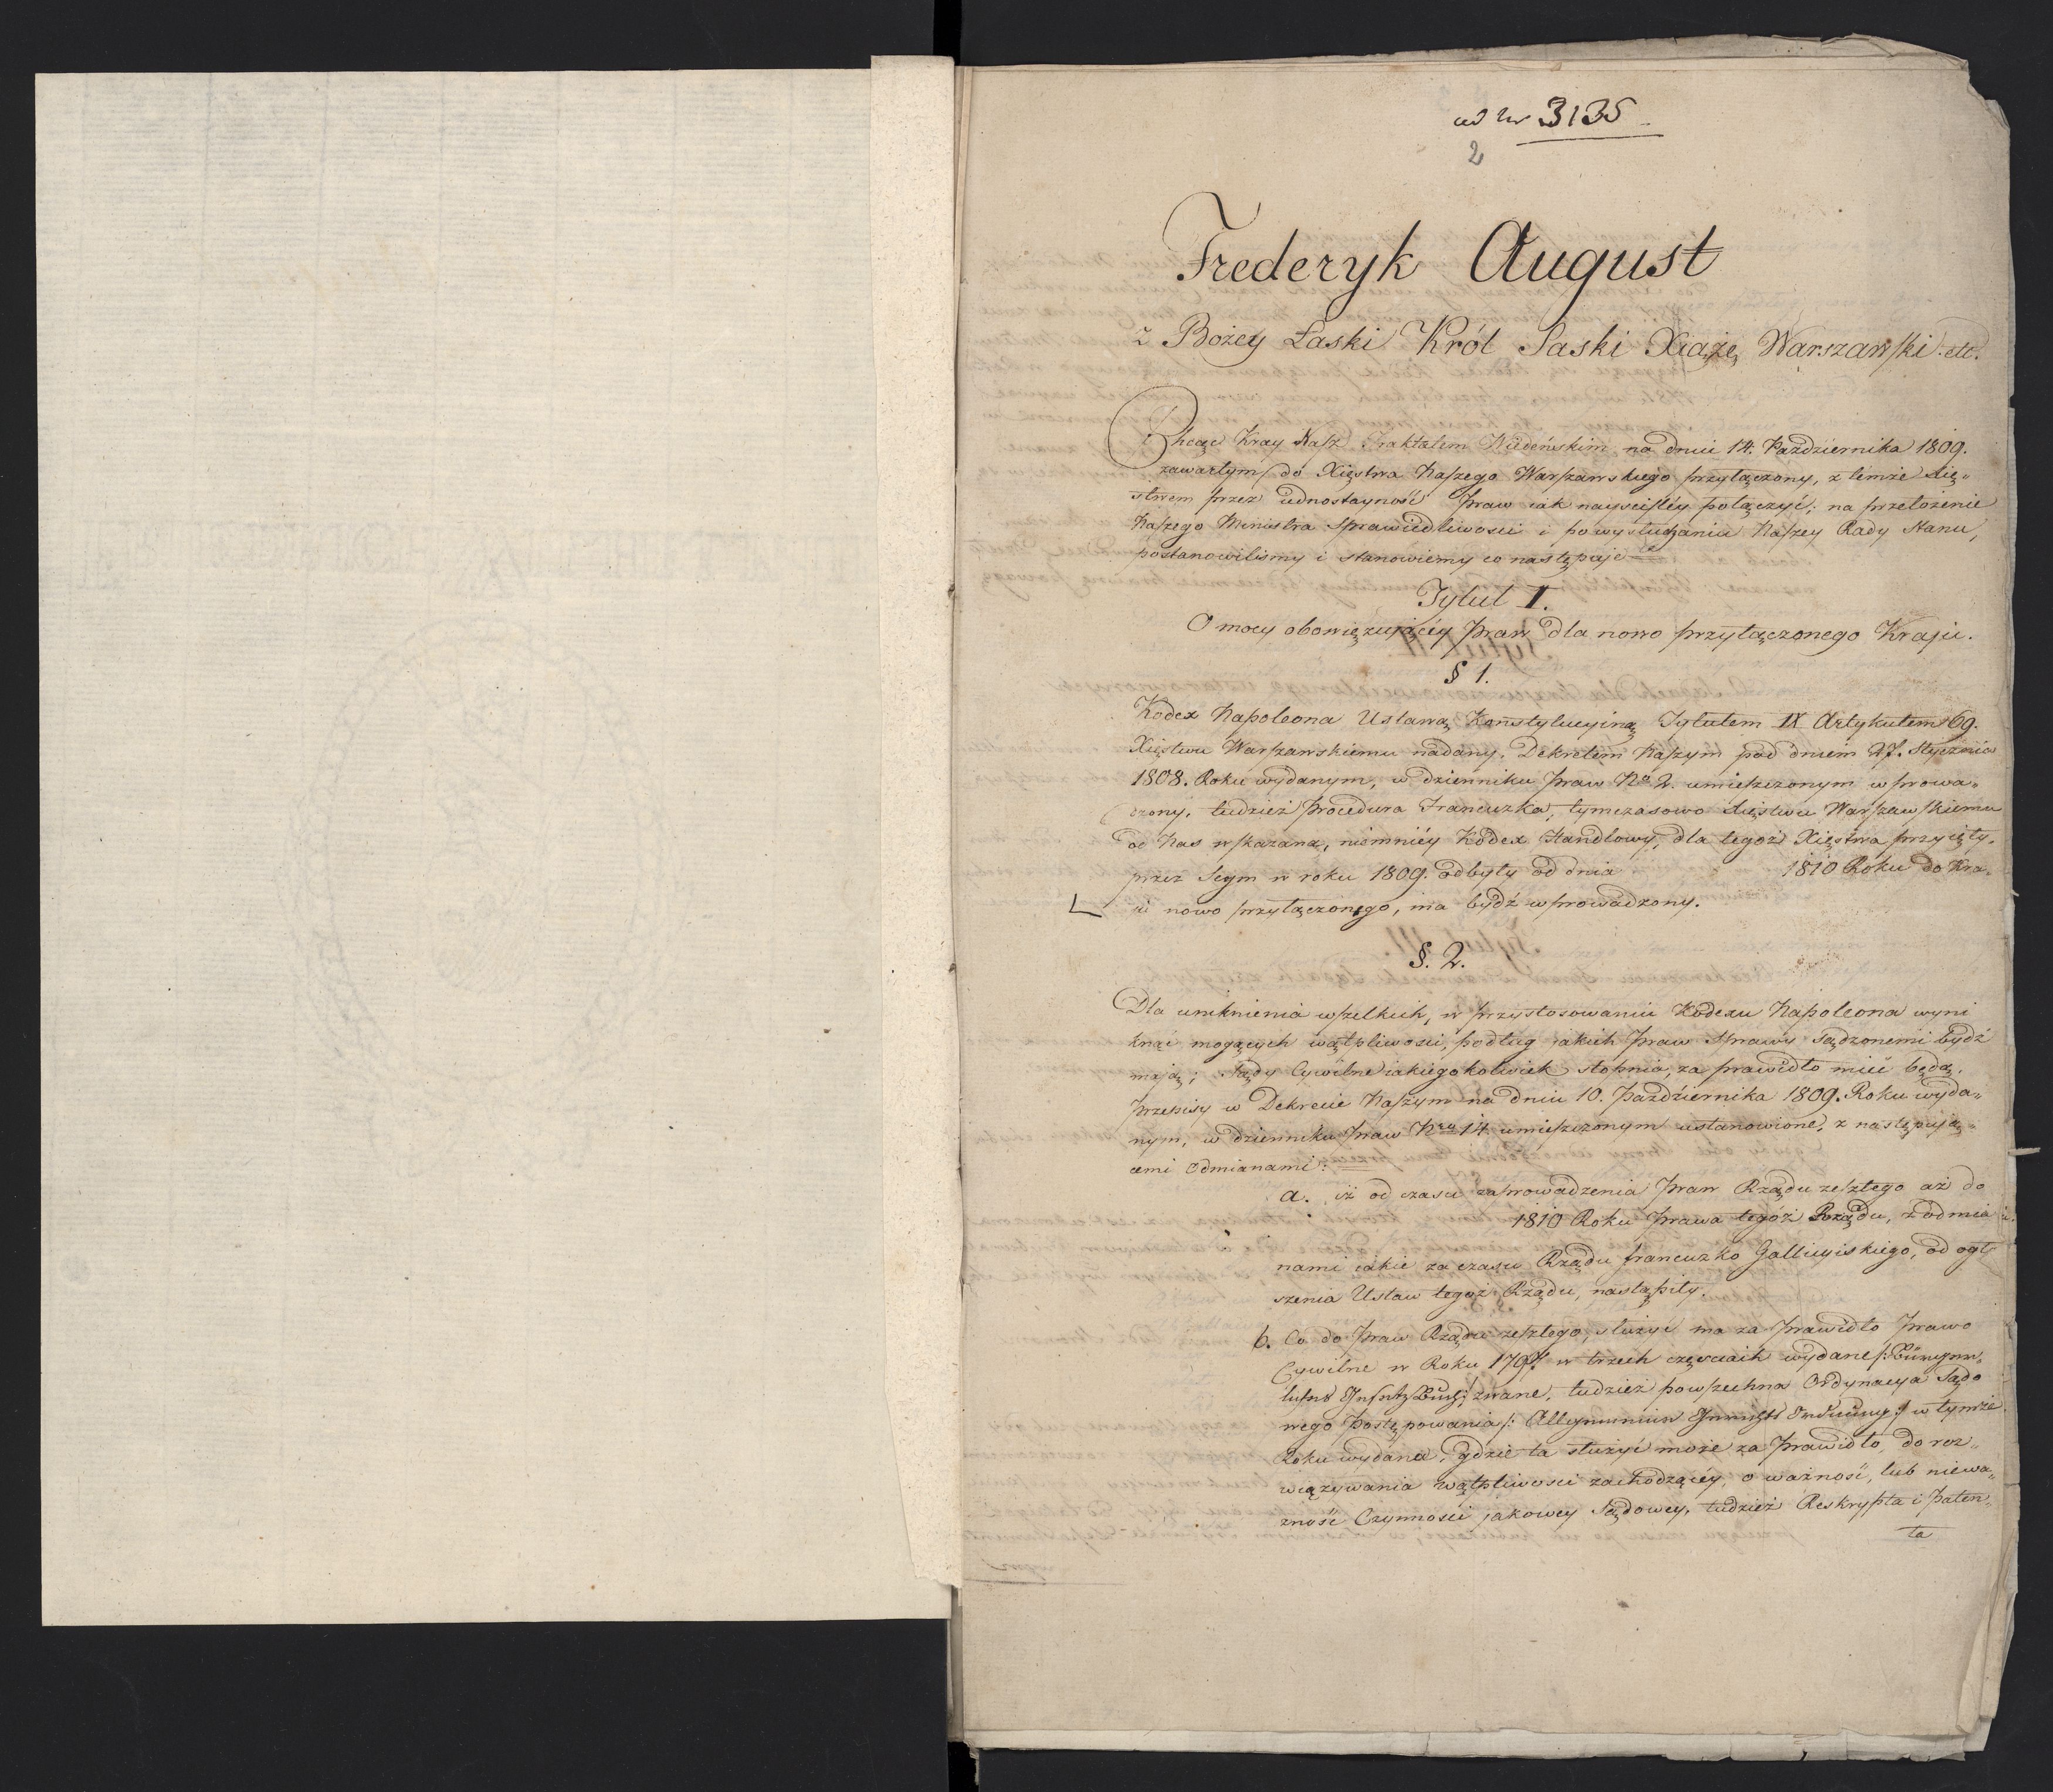 ad Nr 3135
2
Frederyk August
z Bożey Łaski Król Saski Xiążę Warszawski etc.
Chcąc Kray Nasz Traktatem Wiedeńskim na dniu 14. Października 1809.
zawartym do Xięstwa Naszego Warszawskiego przyłączony, z temże Xię„
stwem przez iednostayność Praw iak nayściśley połączyć; na przełożenie
Naszego Ministra Sprawiedliwości i po wysłuchaniu Naszey Rady Stanu,
postanowiliśmy i stanowiemy co następuje
Tytuł I.
O mocy obowięzuiącéy Praw dla nowo przyłączonego Kraju.
§ 1.
Kodex Napoleona Ustawą Konstytucyiną Tytułem IX Artykułem 69.
Xięstwu Warszawskiemu nadany, Dekretem Naszym pod dniem 27. Stycznia
1808. Roku wydanym, w dzienniku Praw No 2. umieszczonym wprowa„
dzony, tudzież Procedura Francuzka, tymczasowo Xięstwu Warszawskiemu
od Nas wskazana, niemniéy Kodex Handlowy, dla tegoż Xięstwa przyięty,
przez Seym w roku 1809. odbyty od dnia 1810 Roku do Kra„
iu nowo przyłączonego, ma bydź wprowadzony.
§. 2.
Dla uniknienia wszelkich, w przystosowaniu Kodexu Napoleona wyni
knąć mogących wątpliwości, podług iakich Praw Sprawy Sądzonemi bydź
mają; Sądy Cywilne iakiegokolwiek stopnia, za prawidło mieć będą,
Przepisy w Dekrecie Naszym na dniu 10. Października 1809. Roku wyda„
nym, w dzienniku Praw Nro 14 umieszczonym ustanowione, z następują„
cemi Odmianami:
a. iż od czasu zaprowadzenia Praw Rządu zeszłego aż do
1810 Roku Prawa tegoż Rządu, z odmia
nami iakie za czasu Rządu francuzko Galliciyskiego, od ogł
szenia Ustaw tegoż Rządu, nastąpiły.
b. Co do Praw Rządu zeszłego, służyć ma za Prawidło Prawo
Cywilne w Roku 1797 w trzech częściach wydane /: Bürgerli
zwane, tudzież powszechna Ordynacya Sądo
wego Postępowania /: Allgemeine Gerichts Ordnung :/ w tymże
Roku wydana, gdzie ta służyć może za Prawidło, do roz„
wiązywania wątpliwości zachodzącéy, o ważność, lub niewa„
żność Czynności jakowey Sądowey, tudzież Reskrypta i Paten„
ta